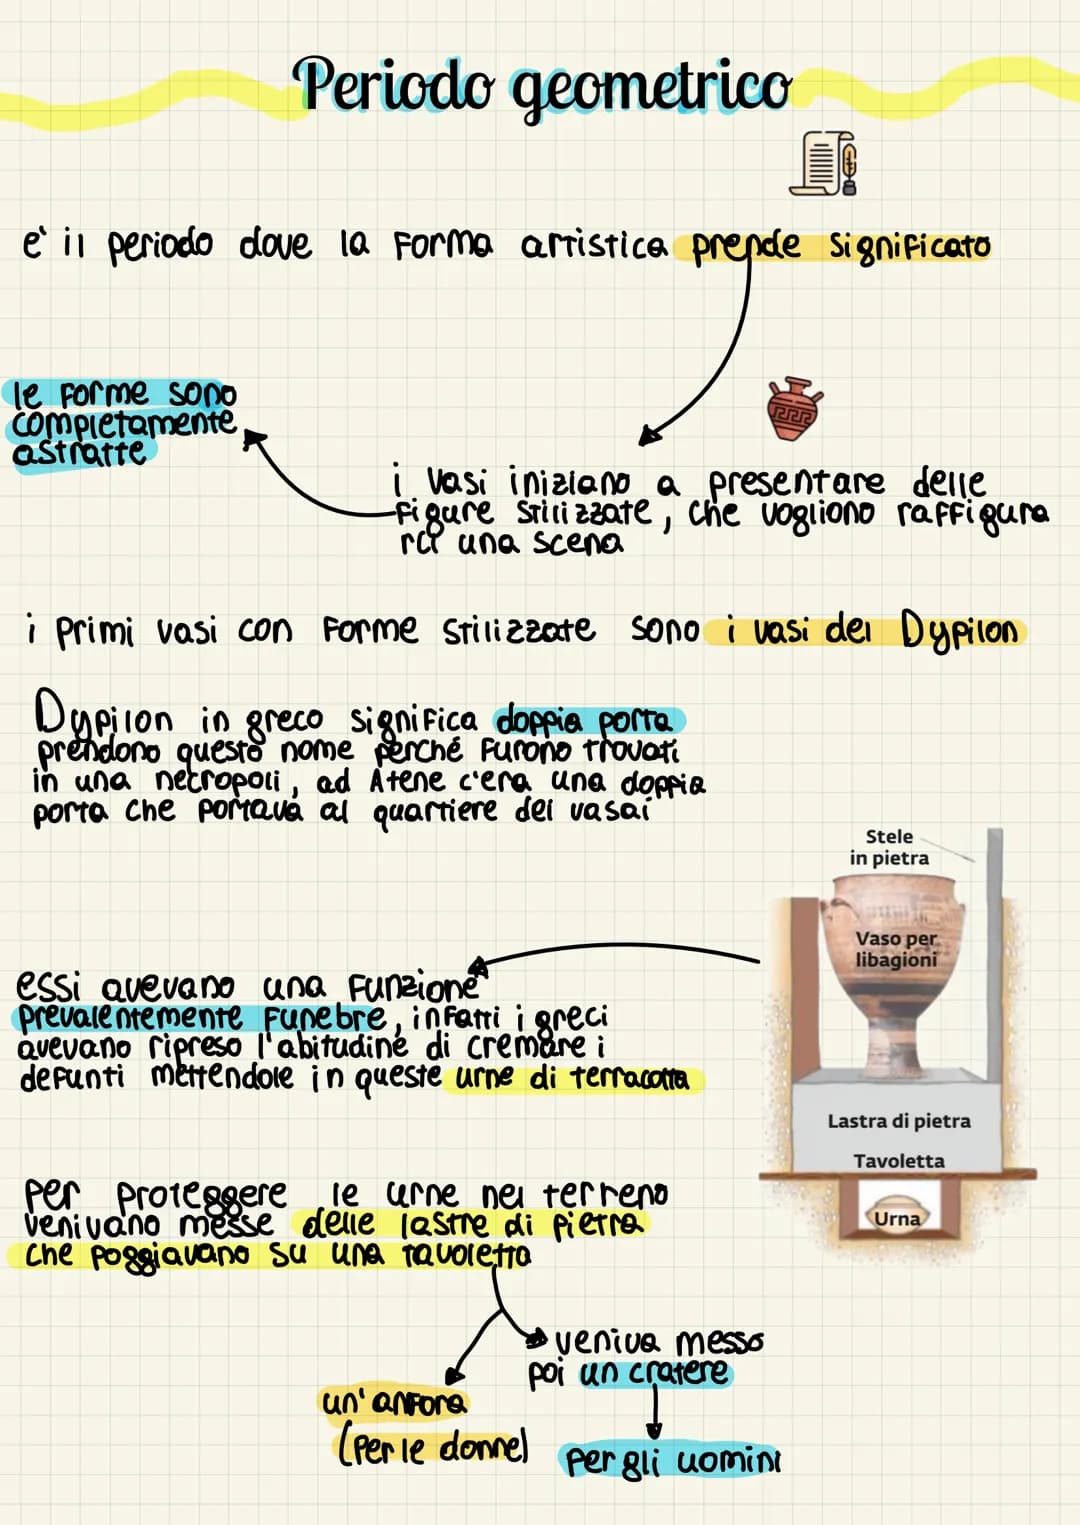 Periodo geometrico
e' il periodo dove la forma artistica prende significato
le forme sono
completamente
astratte
i vasi iniziano a presentare delle
figure stilizzate, che vogliono raffigura
rci una scena
i primi vasi con forme stilizzate sono i vasi del Dypilon
Dypilon in greco significa doppia porta
prendono questo nome perché furono trovati
in una necropoli, ad Atene c'era una doppia
porta che portava al quartiere dei vasai
Stele
in pietra
Vaso per
libagioni
Lastra di pietra
Tavoletta
Urna
essi avevano una funzione
prevalentemente funebre, infatti i greci
avevano ripreso l'abitudine di cremare i
defunti mettendole in queste urne di terracotta
per proteggere le urne nel terreno
venivano messe delle lastre di pietra
che poggiavano su una tavoletta
veniva messo
poi un cratere
un'anfora
(per le donne)
per gli uomini